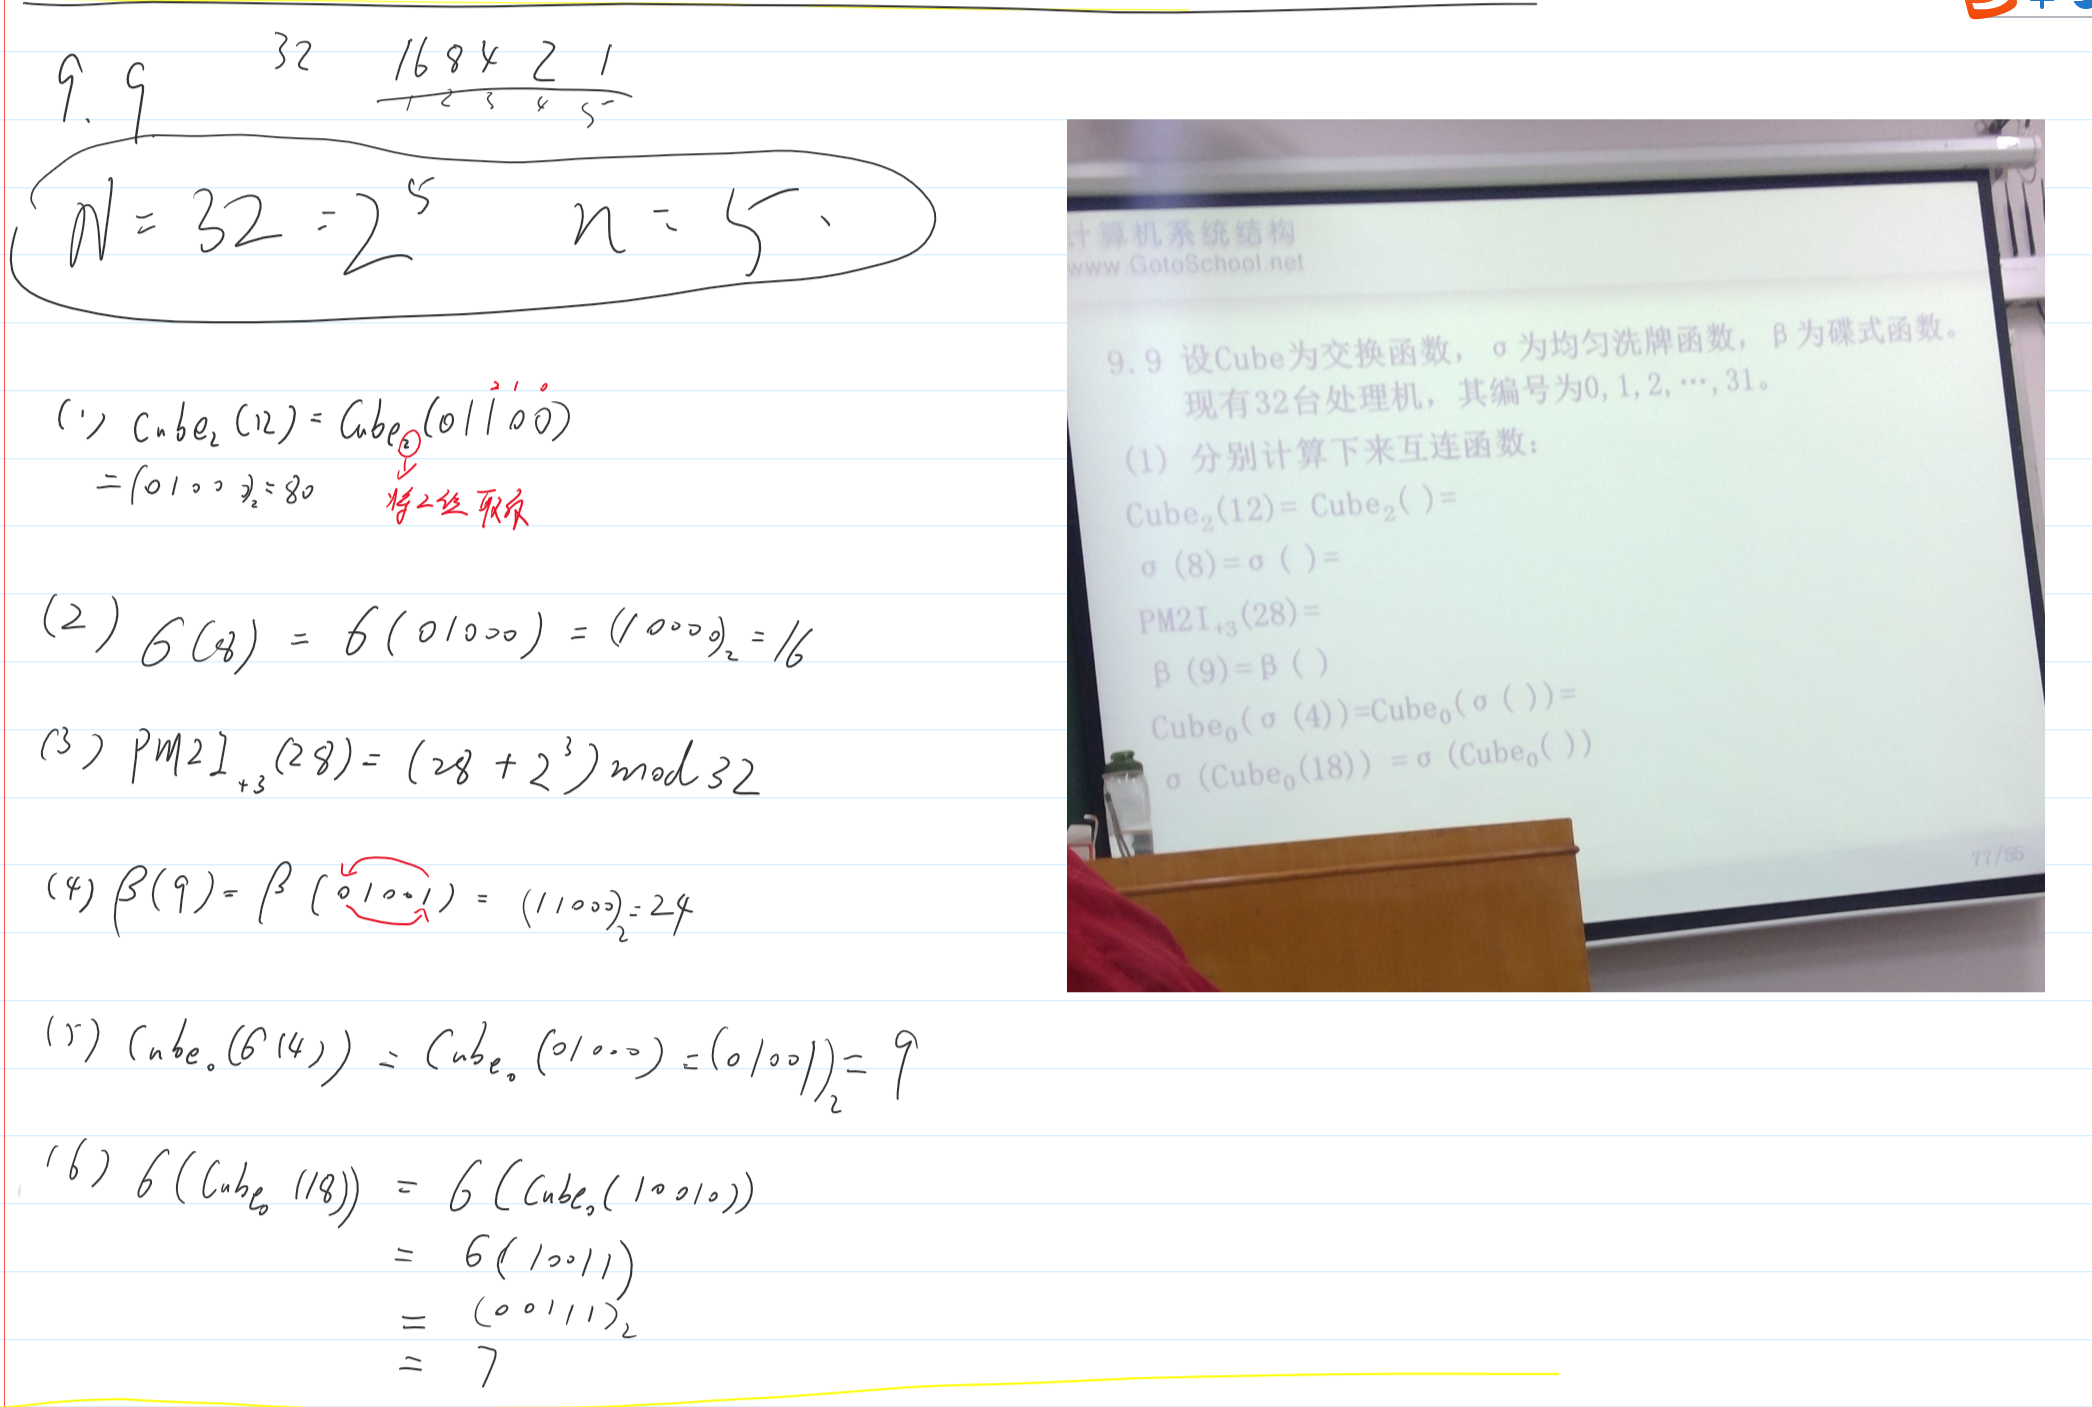 9.9 32 16 8 4 2 1
1 2 3 4 5
N = 32 = 2⁵ n = 5.
2 1 0
(1) Cube₂(12) = Cube₂(01100)
= (01000)₂ = 80
将2位取反
(2) 6(8) = 6(01000) = (10000)₂ = 16
(3) PM2I₊₃(28) = (28 + 2³) mod 32
(4) β(9) = β(01001) = (11000)₂ = 24
(5) Cube₀(6(4)) = Cube₀(01000) = (01001)₂ = 9
(6) 6(Cube₀(18)) = 6(Cube₀(10010))
= 6(10011)
= (00111)₂
= 7
计算机系统结构
www.GotoSchool.net
9.9 设Cube为交换函数，σ为均匀洗牌函数，β为碟式函数。
现有32台处理机，其编号为0,1,2,…,31。
(1) 分别计算下来互连函数：
Cube₂(12)= Cube₂( )=
σ (8)=σ ( )=
PM2I₊₃(28)=
β (9)=β ( )
Cube₀(σ (4))=Cube₀(σ ( ))=
σ (Cube₀(18)) =σ (Cube₀( ))
77/55